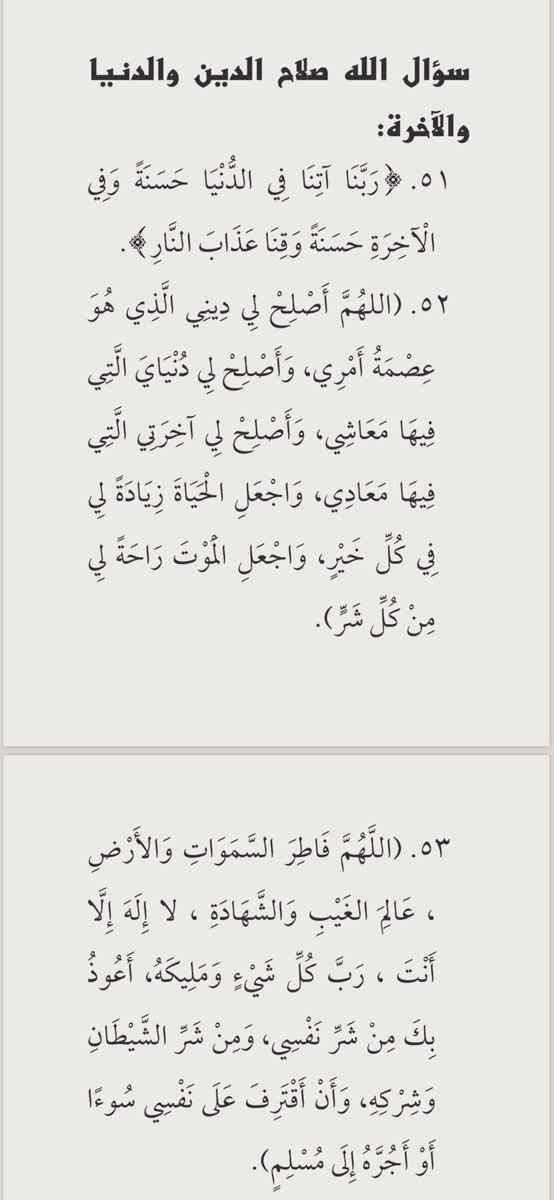 سؤال الله صلاح الدين والدنيا
والآخرة:
٥١. ﴿رَبَّنَا آتِنَا فِي الدُّنْيَا حَسَنَةً وَفِي
الْآخِرَةِ حَسَنَةً وَقِنَا عَذَابَ النَّارِ﴾.
٥٢. (اللهُمَّ أَصْلِحْ لِي دِينِي الَّذِي هُوَ
عِصْمَةُ أَمْرِي، وَأَصْلِحْ لِي دُنْيَايَ الَّتِي
فِيهَا مَعَاشِي، وَأَصْلِحْ لِي آخِرَتِي الَّتِي
فِيهَا مَعَادِي، وَاجْعَلِ الْحَيَاةَ زِيَادَةً لِي
فِي كُلِّ خَيْرٍ، وَاجْعَلِ الْمَوْتَ رَاحَةً لِي
مِنْ كُلِّ شَرٍّ).
٥٣. (اللَّهُمَّ فَاطِرَ السَّمَوَاتِ وَالأَرْضِ
، عَالِمَ الغَيْبِ وَالشَّهَادَةِ ، لا إِلَهَ إِلَّا
أَنْتَ ، رَبَّ كُلِّ شَيْءٍ وَمَلِيكَهُ، أَعُوذُ
بِكَ مِنْ شَرِّ نَفْسِي، وَمِنْ شَرِّ الشَّيْطَانِ
وَشِرْكِهِ، وَأَنْ أَقْتَرِفَ عَلَى نَفْسِي سُوءًا
أَوْ أَجُرَّهُ إِلَى مُسْلِمٍ).